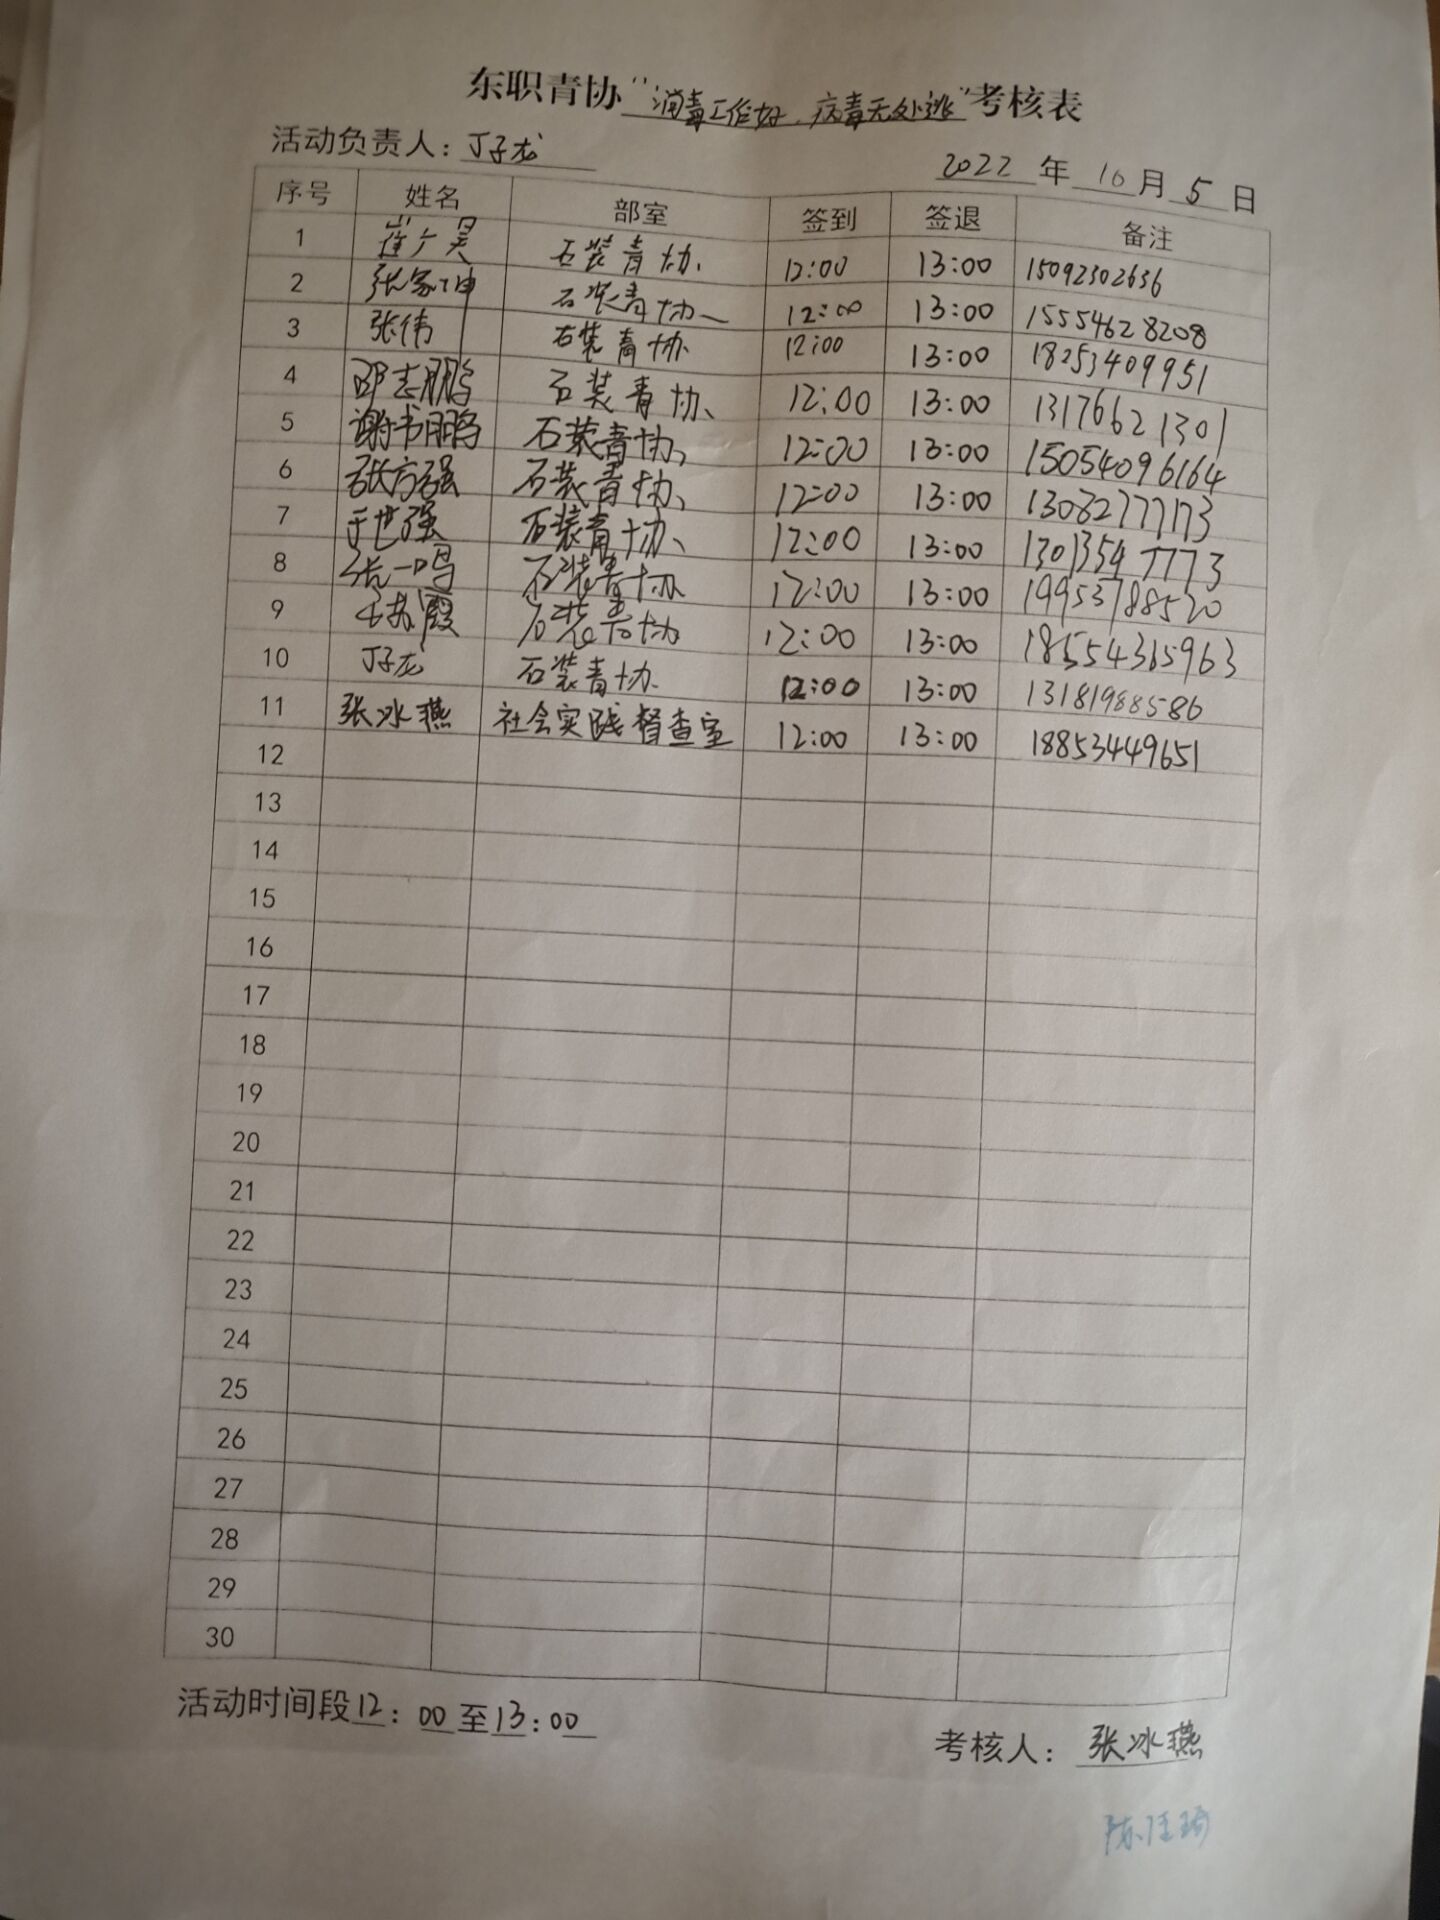 东职青协“消毒工作好，病毒无处逃”考核表
活动负责人：丁子龙
2022年10月5日
序号 姓名 部室 签到 签退 备注
1 崔广昊 石装青协、 12:00 13:00 15092302636
2 张家坤 石装青协、 12:00 13:00 15554628208
3 张伟 石装青协 12:00 13:00 18253409951
4 邵志鹏 石装青协、 12:00 13:00 13176621301
5 谢书鹏 石装青协、 12:00 13:00 15054096164
6 张方强 石装青协、 12:00 13:00 13082777173
7 于世强 石装青协、 12:00 13:00 13013547773
8 张一鸣 石装青协 12:00 13:00 19953788520
9 石装青协 12:00 13:00 18554365963
10 丁子龙 石装青协 12:00 13:00 13181988586
11 张冰燕 社会实践督查室 12:00 13:00 18853449651
12
13
14
15
16
17
18
19
20
21
22
23
24
25
26
27
28
29
30
活动时间段12：00至13：00
考核人：张冰燕